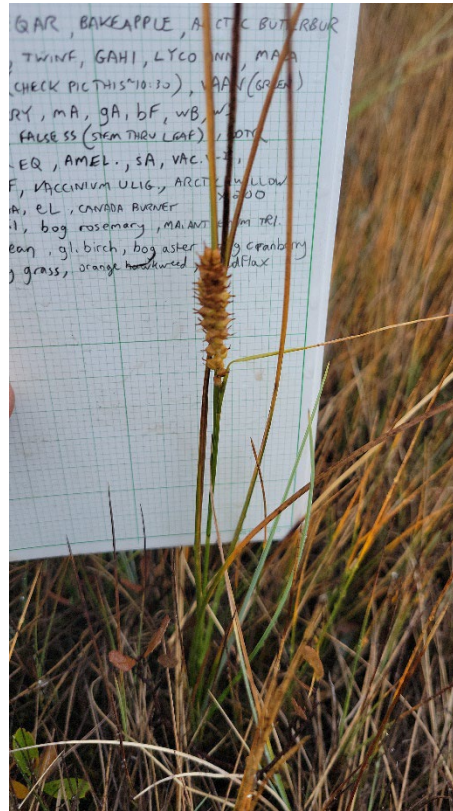 QAR, BAKEAPPLE, ARCTIC BUTERBUR
, TWINF, GAHI, LYCO ANN, MAIA
(CHECK PIC THIS ~10:30), VAAN (GREEN)
RY, mA, gA, bF, wB, W
FALSE SS (STEM THRU LEAF),
EQ, AMEL., SA, VAC.
F, VACCINIUM ULIG, ARCTIC WILLOW
A, eL, CANADA BURNET x200
l, bog rosemary, MAIANTHEM TRI.
ean, gl. birch, bog aster, bog cranberry
grass, orange hawkweed,